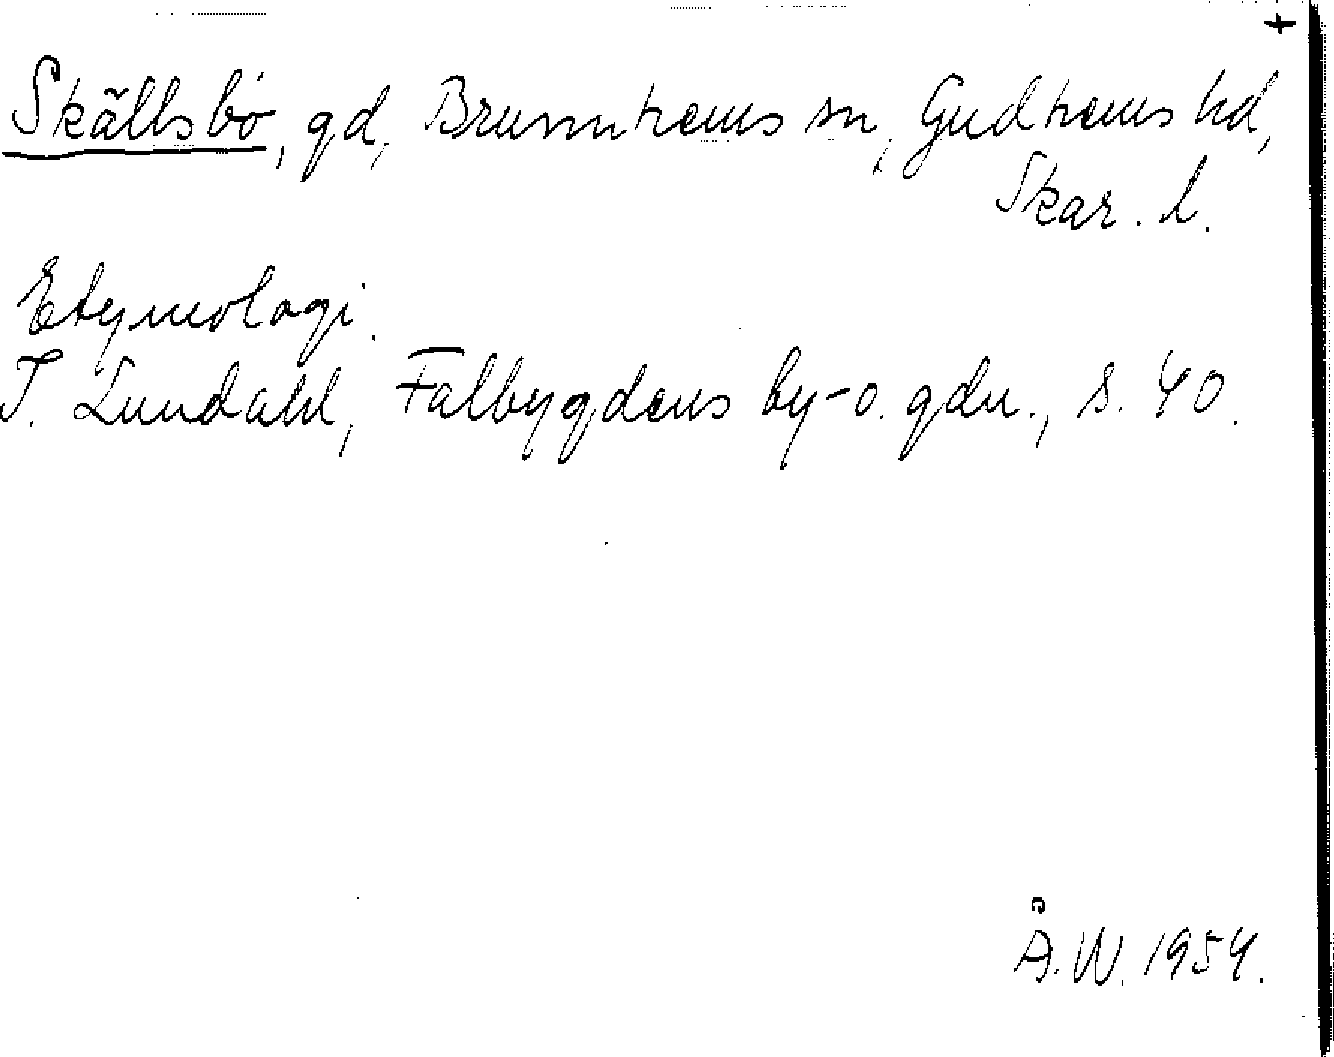 +
Skällsbo, gd, Brunnhems sn, Gudhems hd,
Skar. l.
Etymologi.
I. Lundahl, Falbygdens by- o. gdn., s. 40.
Å.W. 1954.